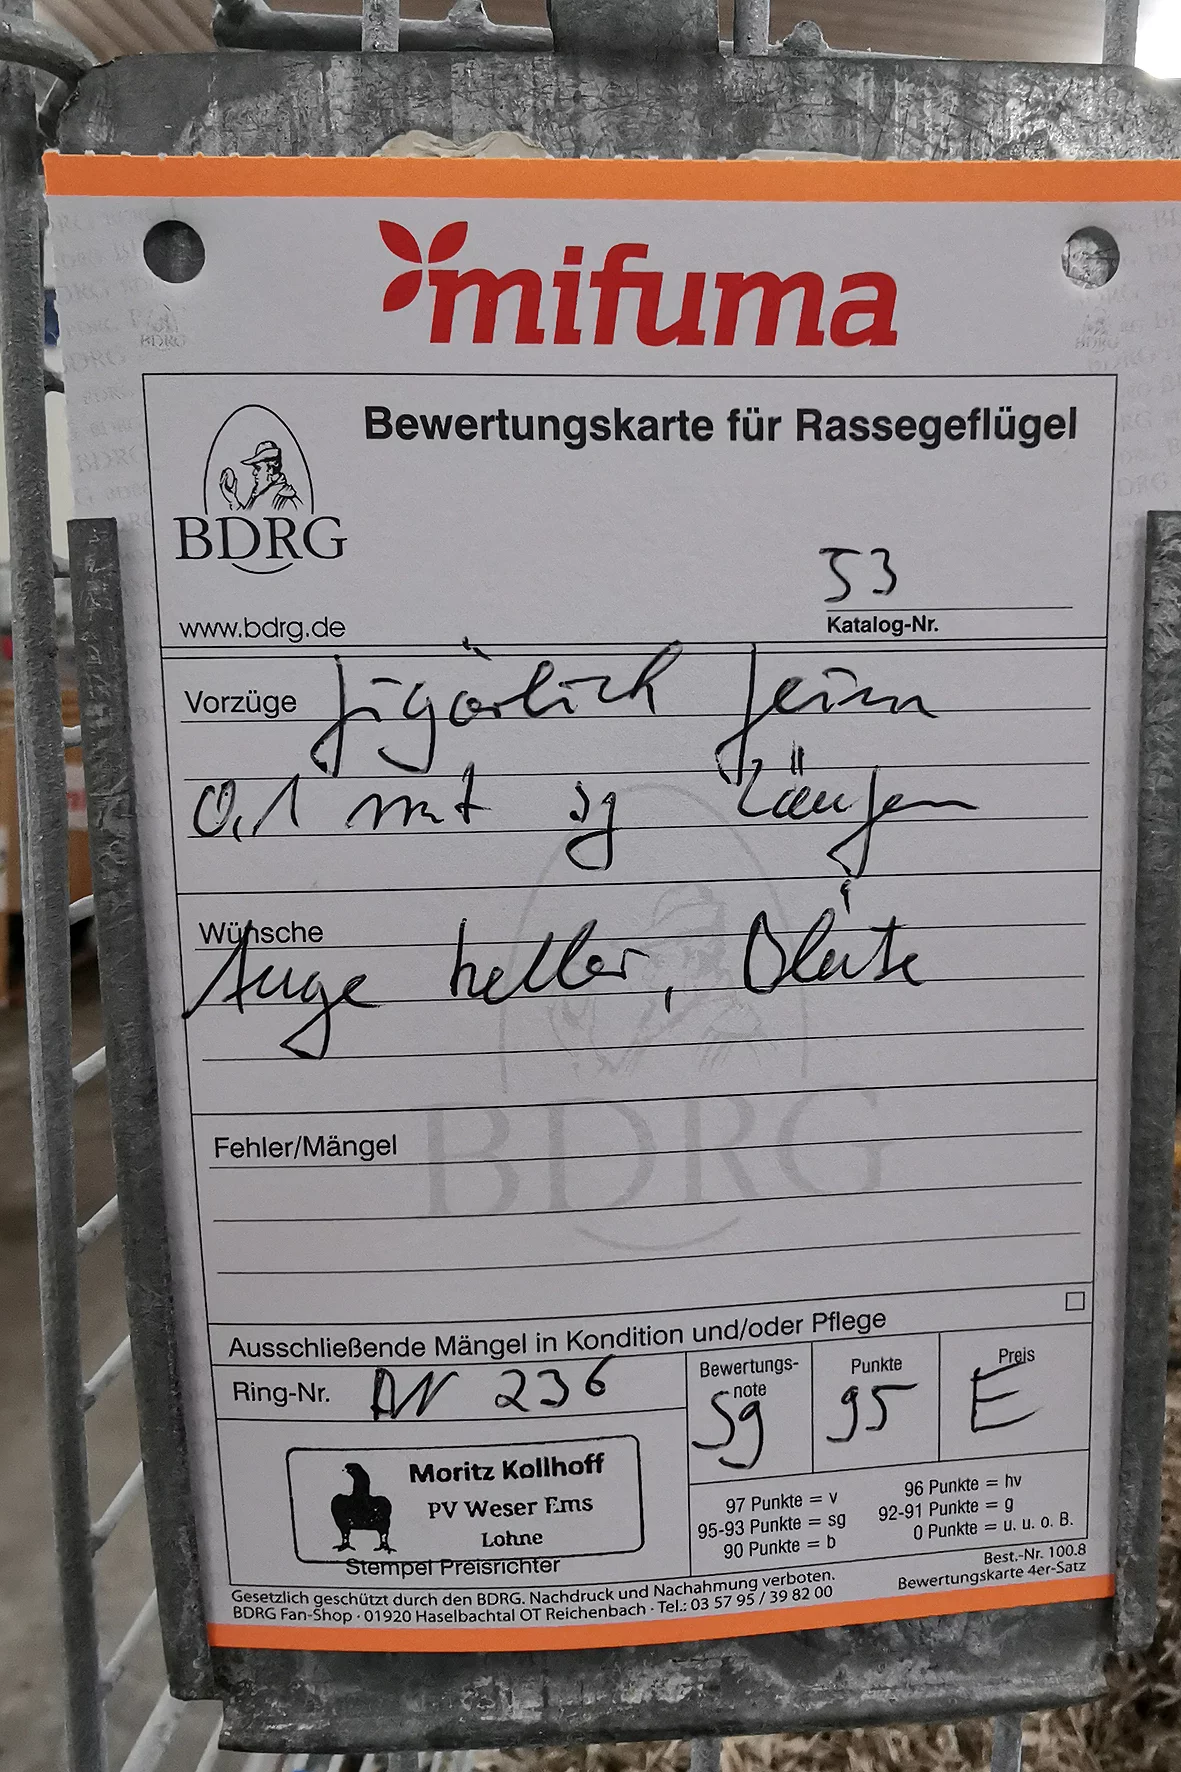 mifuma
Bewertungskarte für Rassegeflügel
BDRG
www.bdrg.de
53
Katalog-Nr.
Vorzüge figürlich feine
0,1 mit sg Läufen
Wünsche
Auge heller,
Fehler/Mängel
BDRG
Ausschließende Mängel in Kondition und/oder Pflege
Ring-Nr. AN 236
Bewertungs-
note
Sg
Punkte
95
Preis
E
Moritz Kollhoff
PV Weser Ems
Lohne
Stempel Preisrichter
97 Punkte = v
95-93 Punkte = sg
90 Punkte = b
96 Punkte = hv
92-91 Punkte = g
0 Punkte = u. u. o. B.
Gesetzlich geschützt durch den BDRG. Nachdruck und Nachahmung verboten.
BDRG Fan-Shop · 01920 Haselbachtal OT Reichenbach · Tel.: 03 57 95 / 39 82 00
Best.-Nr. 100.8
Bewertungskarte 4er-Satz